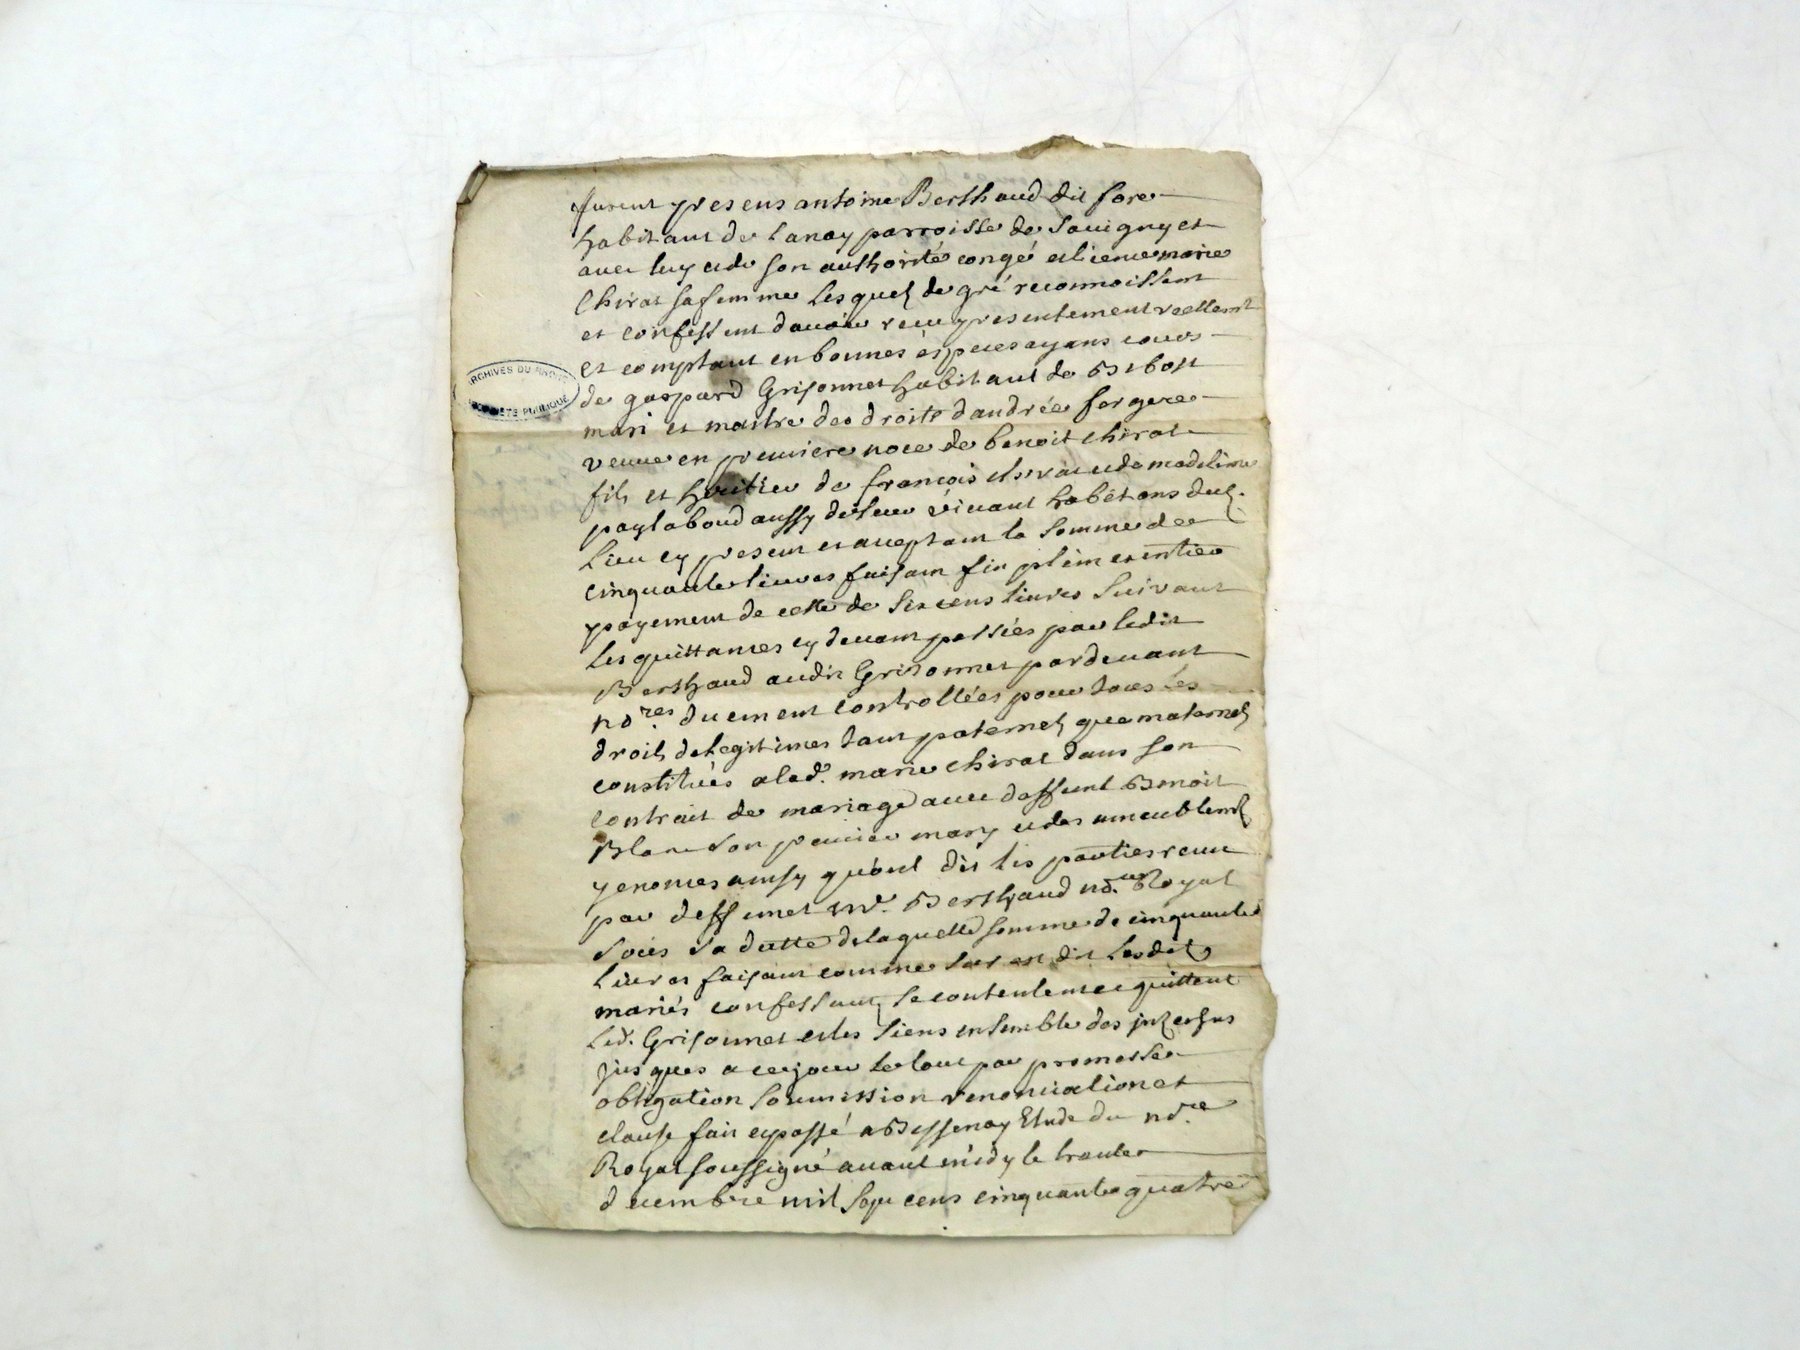 furent presens antoine Berthaud dit fore
habitant de Lanay parroisse de Sauigny et
auec luy et de son authorité congé et licence marie
Chirat sa femme lesquels de gré reconnoissent
et confessent dauoir receu presentement reellemt
et comptant en bonnes especes ayans cours
de gaspard Grisonnet habitant de Bibost
mari et maitre des droits dandrée fergere
veuue en premiere noce de benoit chirat
fils et heritier de francois chirat et de madeleine
paylaboud aussy de leur viuant habitans dud.
lieu cy present et acceptant la somme de
cinquante liures faisant fin plein et entier
payement de celle de six cens liures suivant
les quittances cy deuant passées par ledit
Berthaud audit Grisonnet pardeuant
nores duement controllées pour tous les
droits de legitimes tant paternels que maternels
constitués a lad. marie chirat dans son
contrait de mariage auec deffunt Benoit
Blanc son premier mary et des ameublemts
y enoncés ainsy quont dit les parties receu
par deffunct Me. Berthaud nore Royal
sous sa datte de laquelle somme de cinquante
liures faisant comme sus est dit lesdits
mariés confessants se contentent et quittent
led. Grisonnet et les siens ensemble des jntherests
jusques a ce jour le tout par promesse
obligation soumission renonciation et
clause fait et passé a Bessenay Etude du nore
Royal soussigné auant midy le trente
decembre mil sept cens cinquante quatre
ARCHIVES DU RHÔNE
PROPRIÉTÉ PUBLIQUE